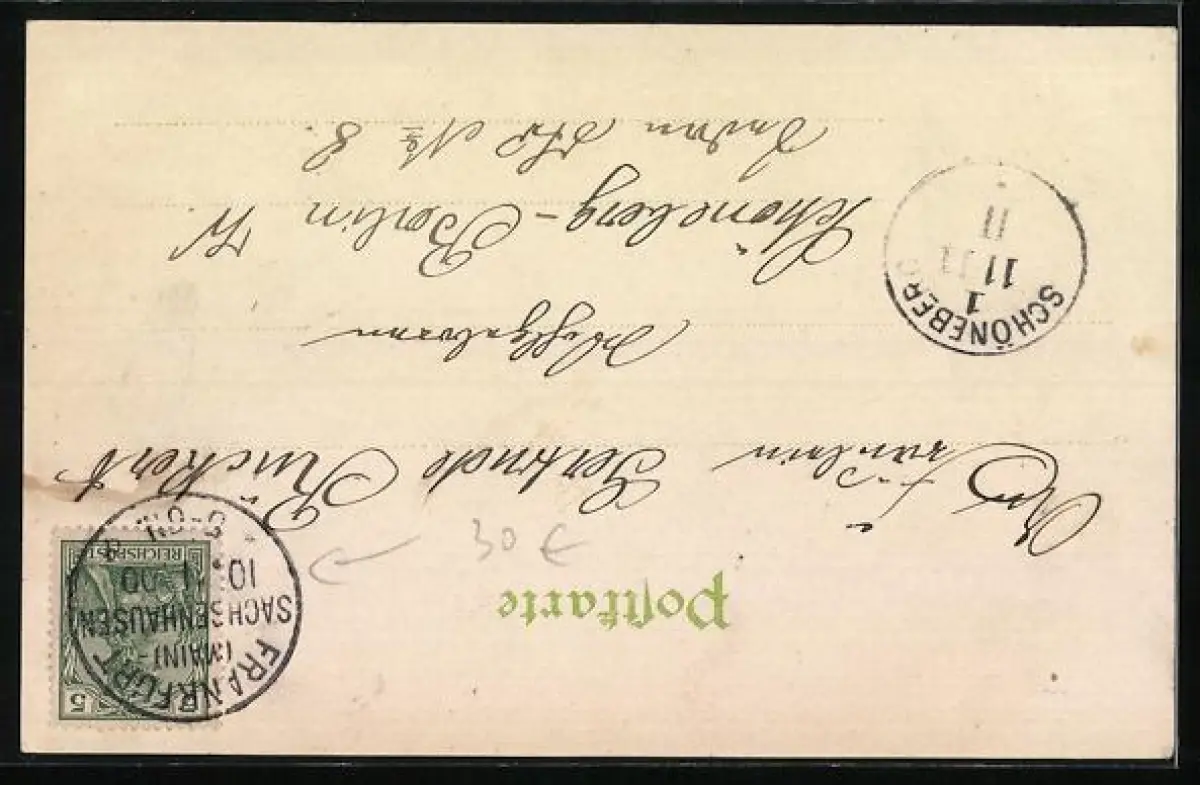 Postkarte
30 €
An Fräulein Gertrude Rückert
Wohlgeboren
Schöneberg-Berlin W
Str No 8.
REICHSPOST
5
FRANKFURT
(MAIN)-
SACHSENHAUSEN
10.11.00
SCHÖNEBERG
1
11 11